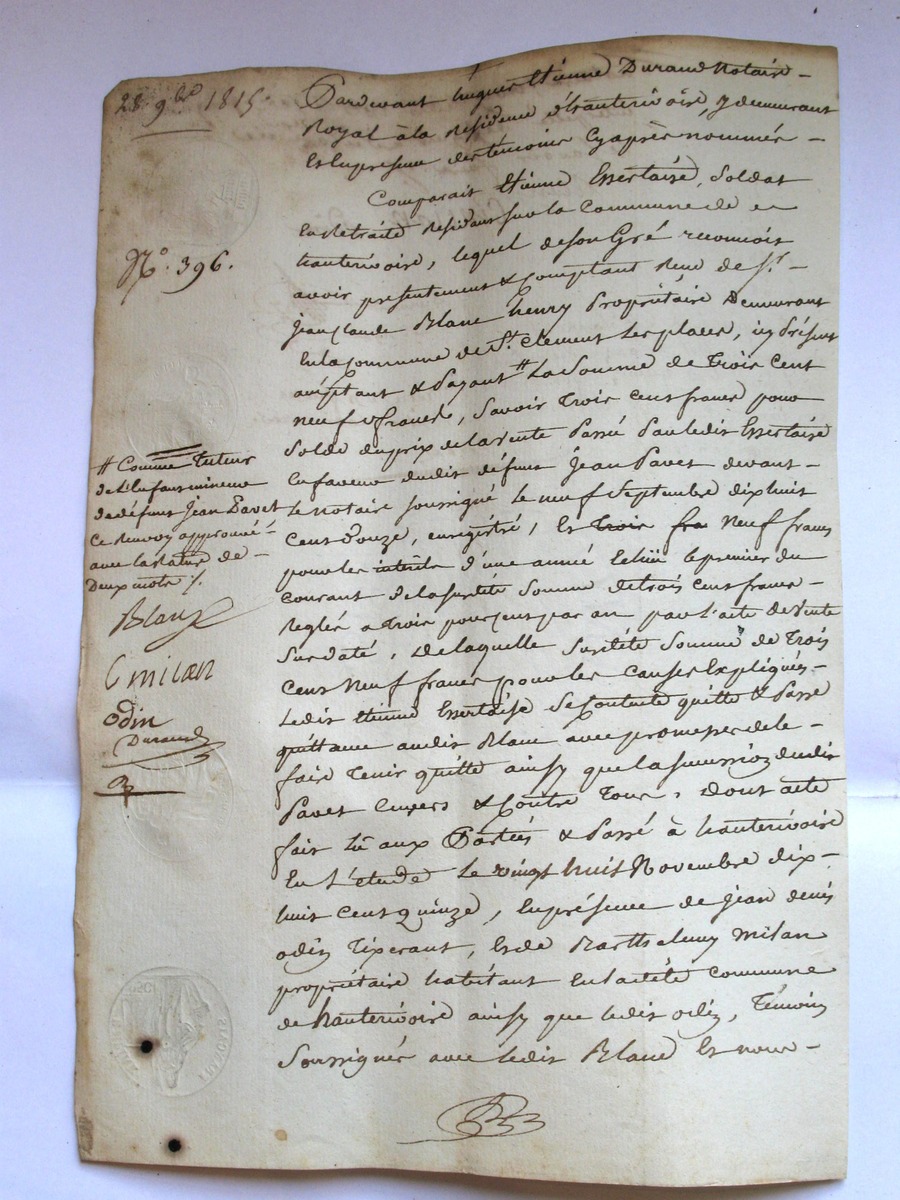 28 9bre 1815.
N°. 396.
Pardevant hugues Etienne Durand Notaire -
Royal à la Résidence d'hauterivoire, y demeurant
Et En presence des témoins Cy après nommés -
Comparait Etienne Essertaise, Soldat
En Retraite Résidant sur la Commune de
hauterivoire, lequel de son Gré reconnois
avoir presentement & Comptant Reçu de Sr. -
jean Claude Blanc henry Propriétaire Demeurant
En la Commune de St. Clement Les places, icy Présent
acceptant & Payant # La Somme de Trois Cent
neuf francs, Savoir Trois Cent francs pour
Solde du prix de la vente Passé Par ledit Essertaise
En faveur dudit défunt Jean Pavet devant -
Le Notaire soussigné Le neuf Septembre dix huit
Cent Douze, enregistré, Et Trois fra Neuf francs
pour les intérêts d'une année Echüe le premier du
Courant de la susdite Somme de trois Cent francs -
Reglés a Trois pour Cent par an par l'acte de Vente
Sus daté, de laquelle Susdite Somme de Trois
Cent Neuf francs pour les Causes Expliquées -
Ledit Etienne Essertaise Se Contente quitte & Passe
quittance audit Blanc avec promesse de le -
faire Tenir quitte ainsy que la succession dudit
Pavet Envers & Contre Tous. Dont acte
fait lû aux Parties & Passé à hauterivoire
En L'étude Le vingt huit Novembre dix -
huit Cent Quinze, En présence de jean denis
odin Tisserant, Et de Barthelemy Milan
propriétaire habitant En ladite Commune
de hauterivoire ainsy que ledit odin, Témoins
Soussignés avec ledit Blanc Et nous -
# Comme Tuteur
de L'Enfant mineur
de défunt Jean Pavet
Ce Renvoy approuvé -
avec la Rature de -
Deux mots /.
Blanc
C milan
odin
Durand